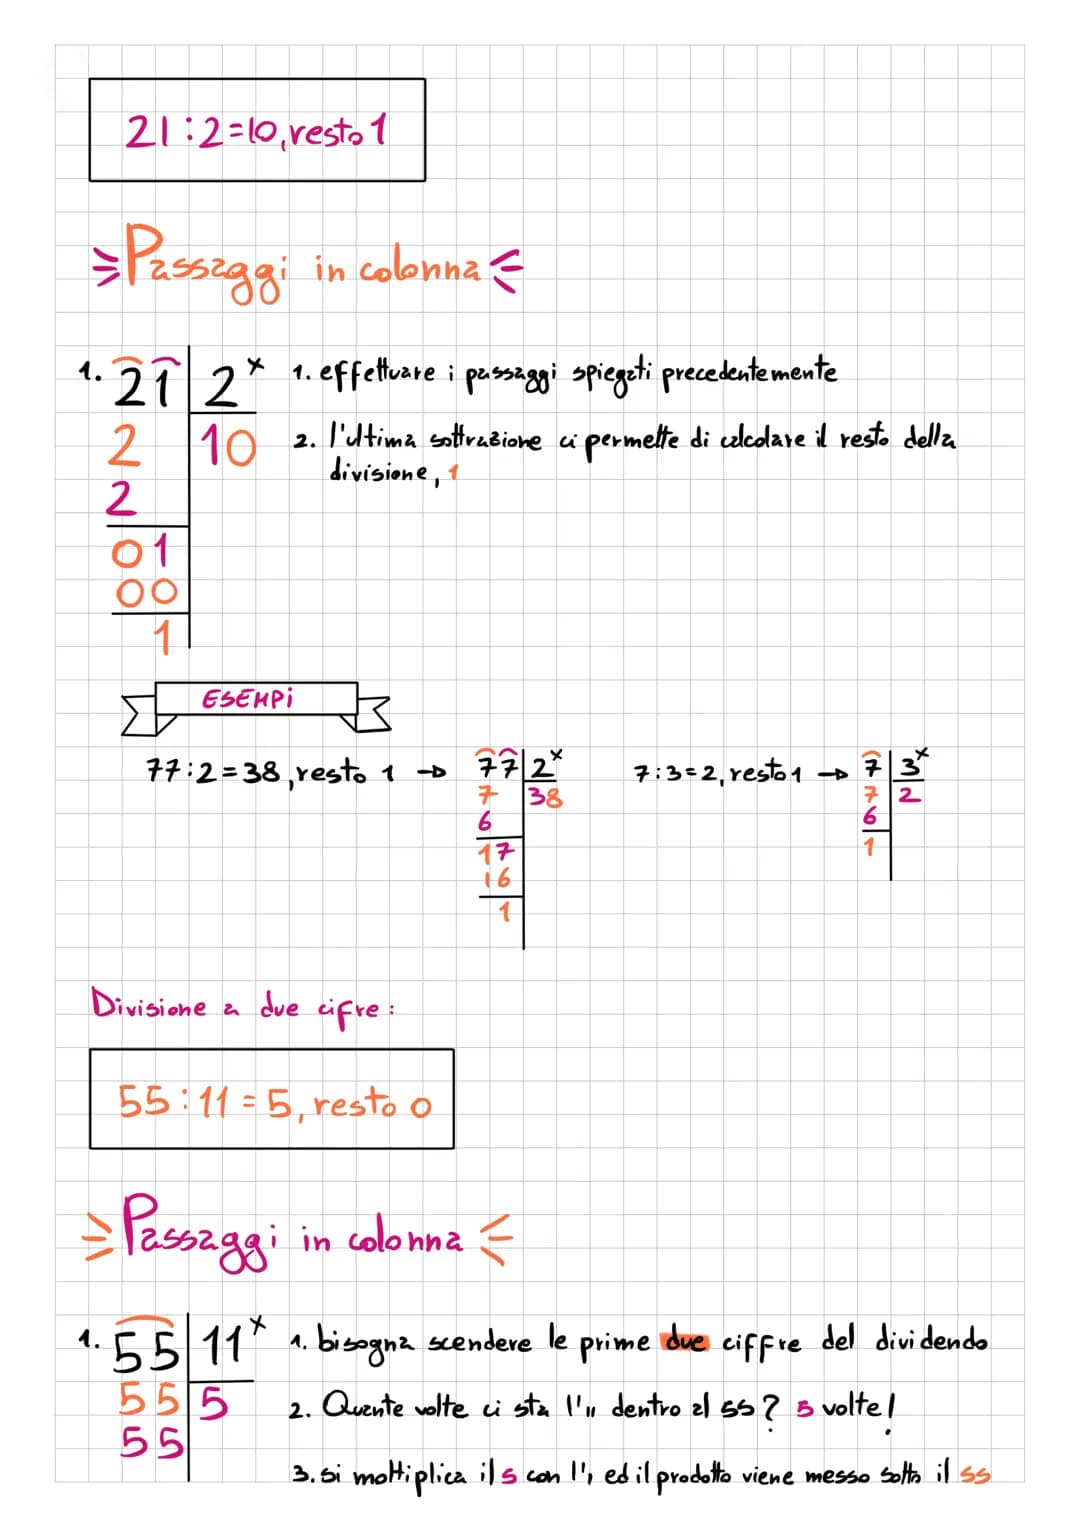 21:2=10, resto 1
Passaggi in colonna
1. 21 2 x
2 10
2
01
00
1
1. effettuare i passaggi spiegati precedentemente
2. l'ultima sottrazione ci permette di calcolare il resto della
divisione, 1
ESEMPi
77:2=38, resto 1 → 77 2 x
7 38
6
17
16
1
7:3=2, resto 1 → 7 3 x
7 2
6
1
Divisione a due cifre:
55:11=5, resto 0
Passaggi in colonna
1. 55 11 x
55 5
55
1. bisogna scendere le prime due ciffre del dividendo
2. Quante volte ci sta l'11 dentro al 55? 5 volte!
3. si moltiplica il 5 con l'1 ed il prodotto viene messo sotto il 55